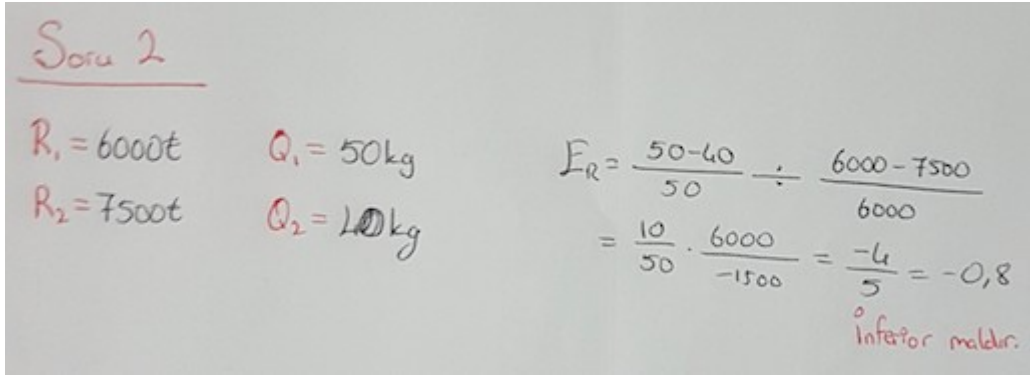 Soru 2
R₁ = 6000t Q₁ = 50kg
R₂ = 7500t Q₂ = 40kg
E_R = 50-40/50 ÷ 6000-7500/6000
= 10/50 · 6000/-1500 = -4/5 = -0,8
inferior maldır.